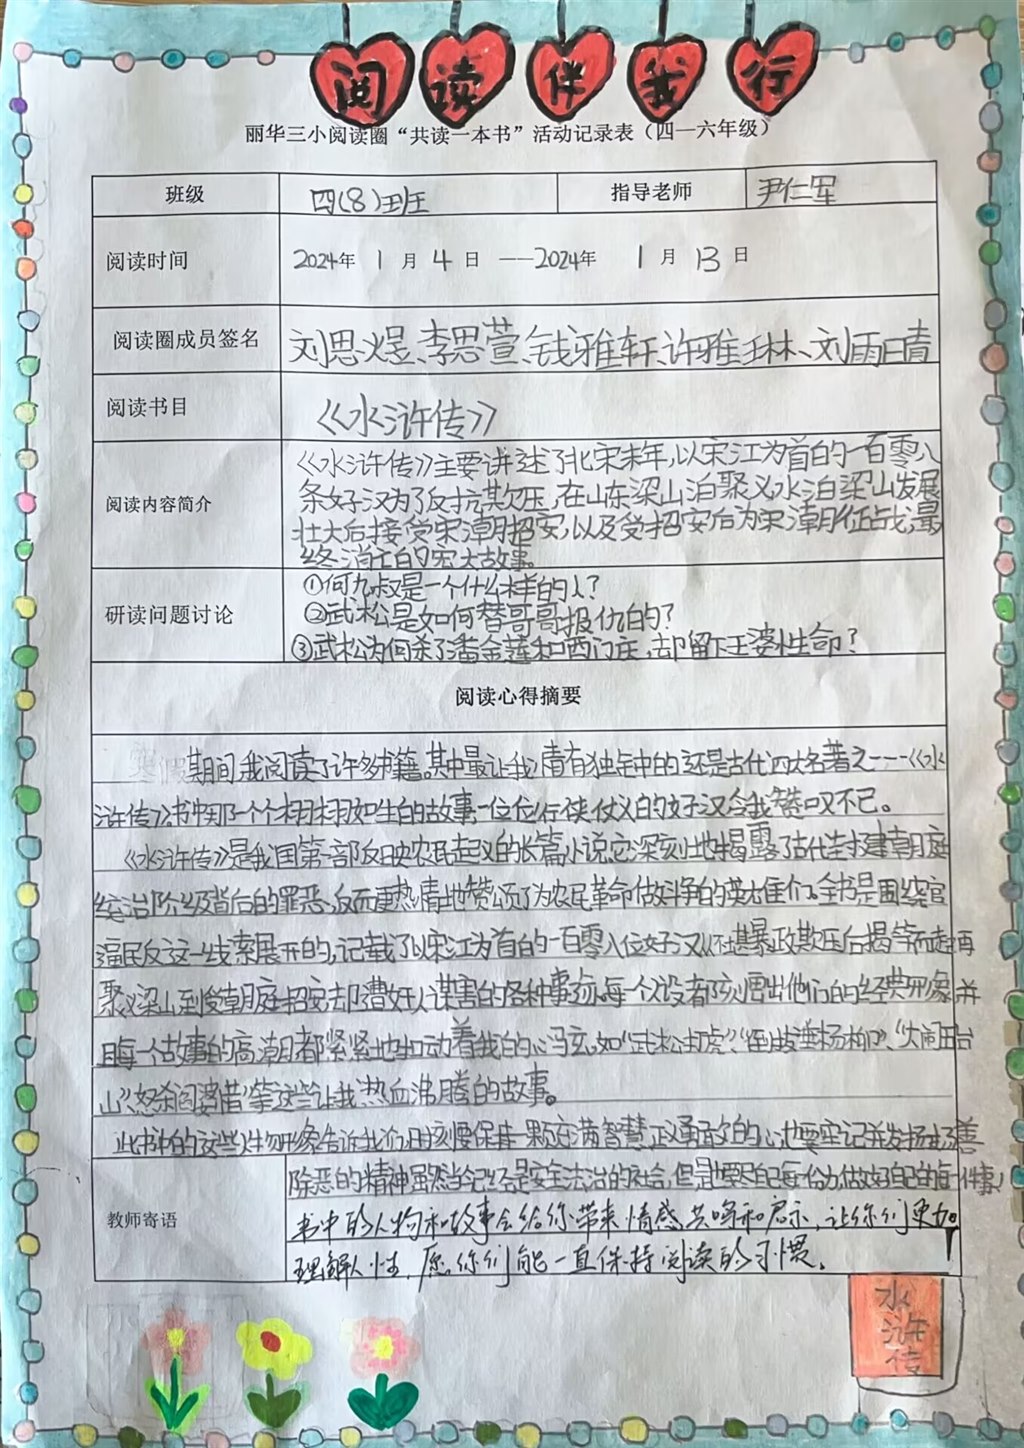 阅读伴我行
丽华三小阅读圈“共读一本书”活动记录表（四—六年级）
班级 四(8)班 指导老师 尹仁军
阅读时间 2024年 1 月 4 日 ——2024年 1 月 13 日
阅读圈成员签名 刘思煜、李思萱、钱雅轩、许雅琳、刘雨晴
阅读书目 《水浒传》
阅读内容简介
《水浒传》主要讲述了北宋末年,以宋江为首的一百零八
条好汉为了反抗欺压,在山东梁山泊聚义水泊梁山发展
壮大后接受宋潮招安,以及受招安后为宋潮征战,最
终消亡的宏大故事。
研读问题讨论
①何九叔是一个什么样的人?
②武松是如何替哥哥报仇的?
③武松为何杀了潘金莲和西门庆,却留下王婆性命?
阅读心得摘要
寒假期间,我阅读了许多书籍。其中最让我情有独钟的还是古代四大名著之一--《水
浒传》书中那一个个栩栩如生的故事一位位行侠仗义的好汉令我赞叹不已。
《水浒传》是我国第一部反映农民起义的长篇小说,它深刻地揭露了古代封建朝庭
统治阶级背后的罪恶、反而更热情地赞颂了为农民革命做斗争的英雄们。全书是围绕官
逼民反这一线索展开的,记载了以宋江为首的一百零八位好汉从不堪暴政欺压后揭竿而起,再
聚义梁山到受朝庭招安却遭奸人谋害的各种事迹、每一个人设都刻画出他们的经典形象并
且每一个故事的高潮都紧紧地扣动着我的心弦。如“武松打虎”、“倒拔垂杨柳”、“大闹五台
山”“怒杀阎婆惜”等这些让我热血沸腾的故事。
此书中的这些人物形象告诉我们应该懂保持一颗充满智慧正义勇敢的心,也要牢记并发扬惩善
除恶的精神虽然当今已经是安全法治的社会,但是也要尽自己每一份力,做好自己的每一件事!
教师寄语
书中的人物和故事会给你带来情感共鸣和启示,让你们更加
理解人性,愿你们能一直保持阅读的习惯。
水
浒
传